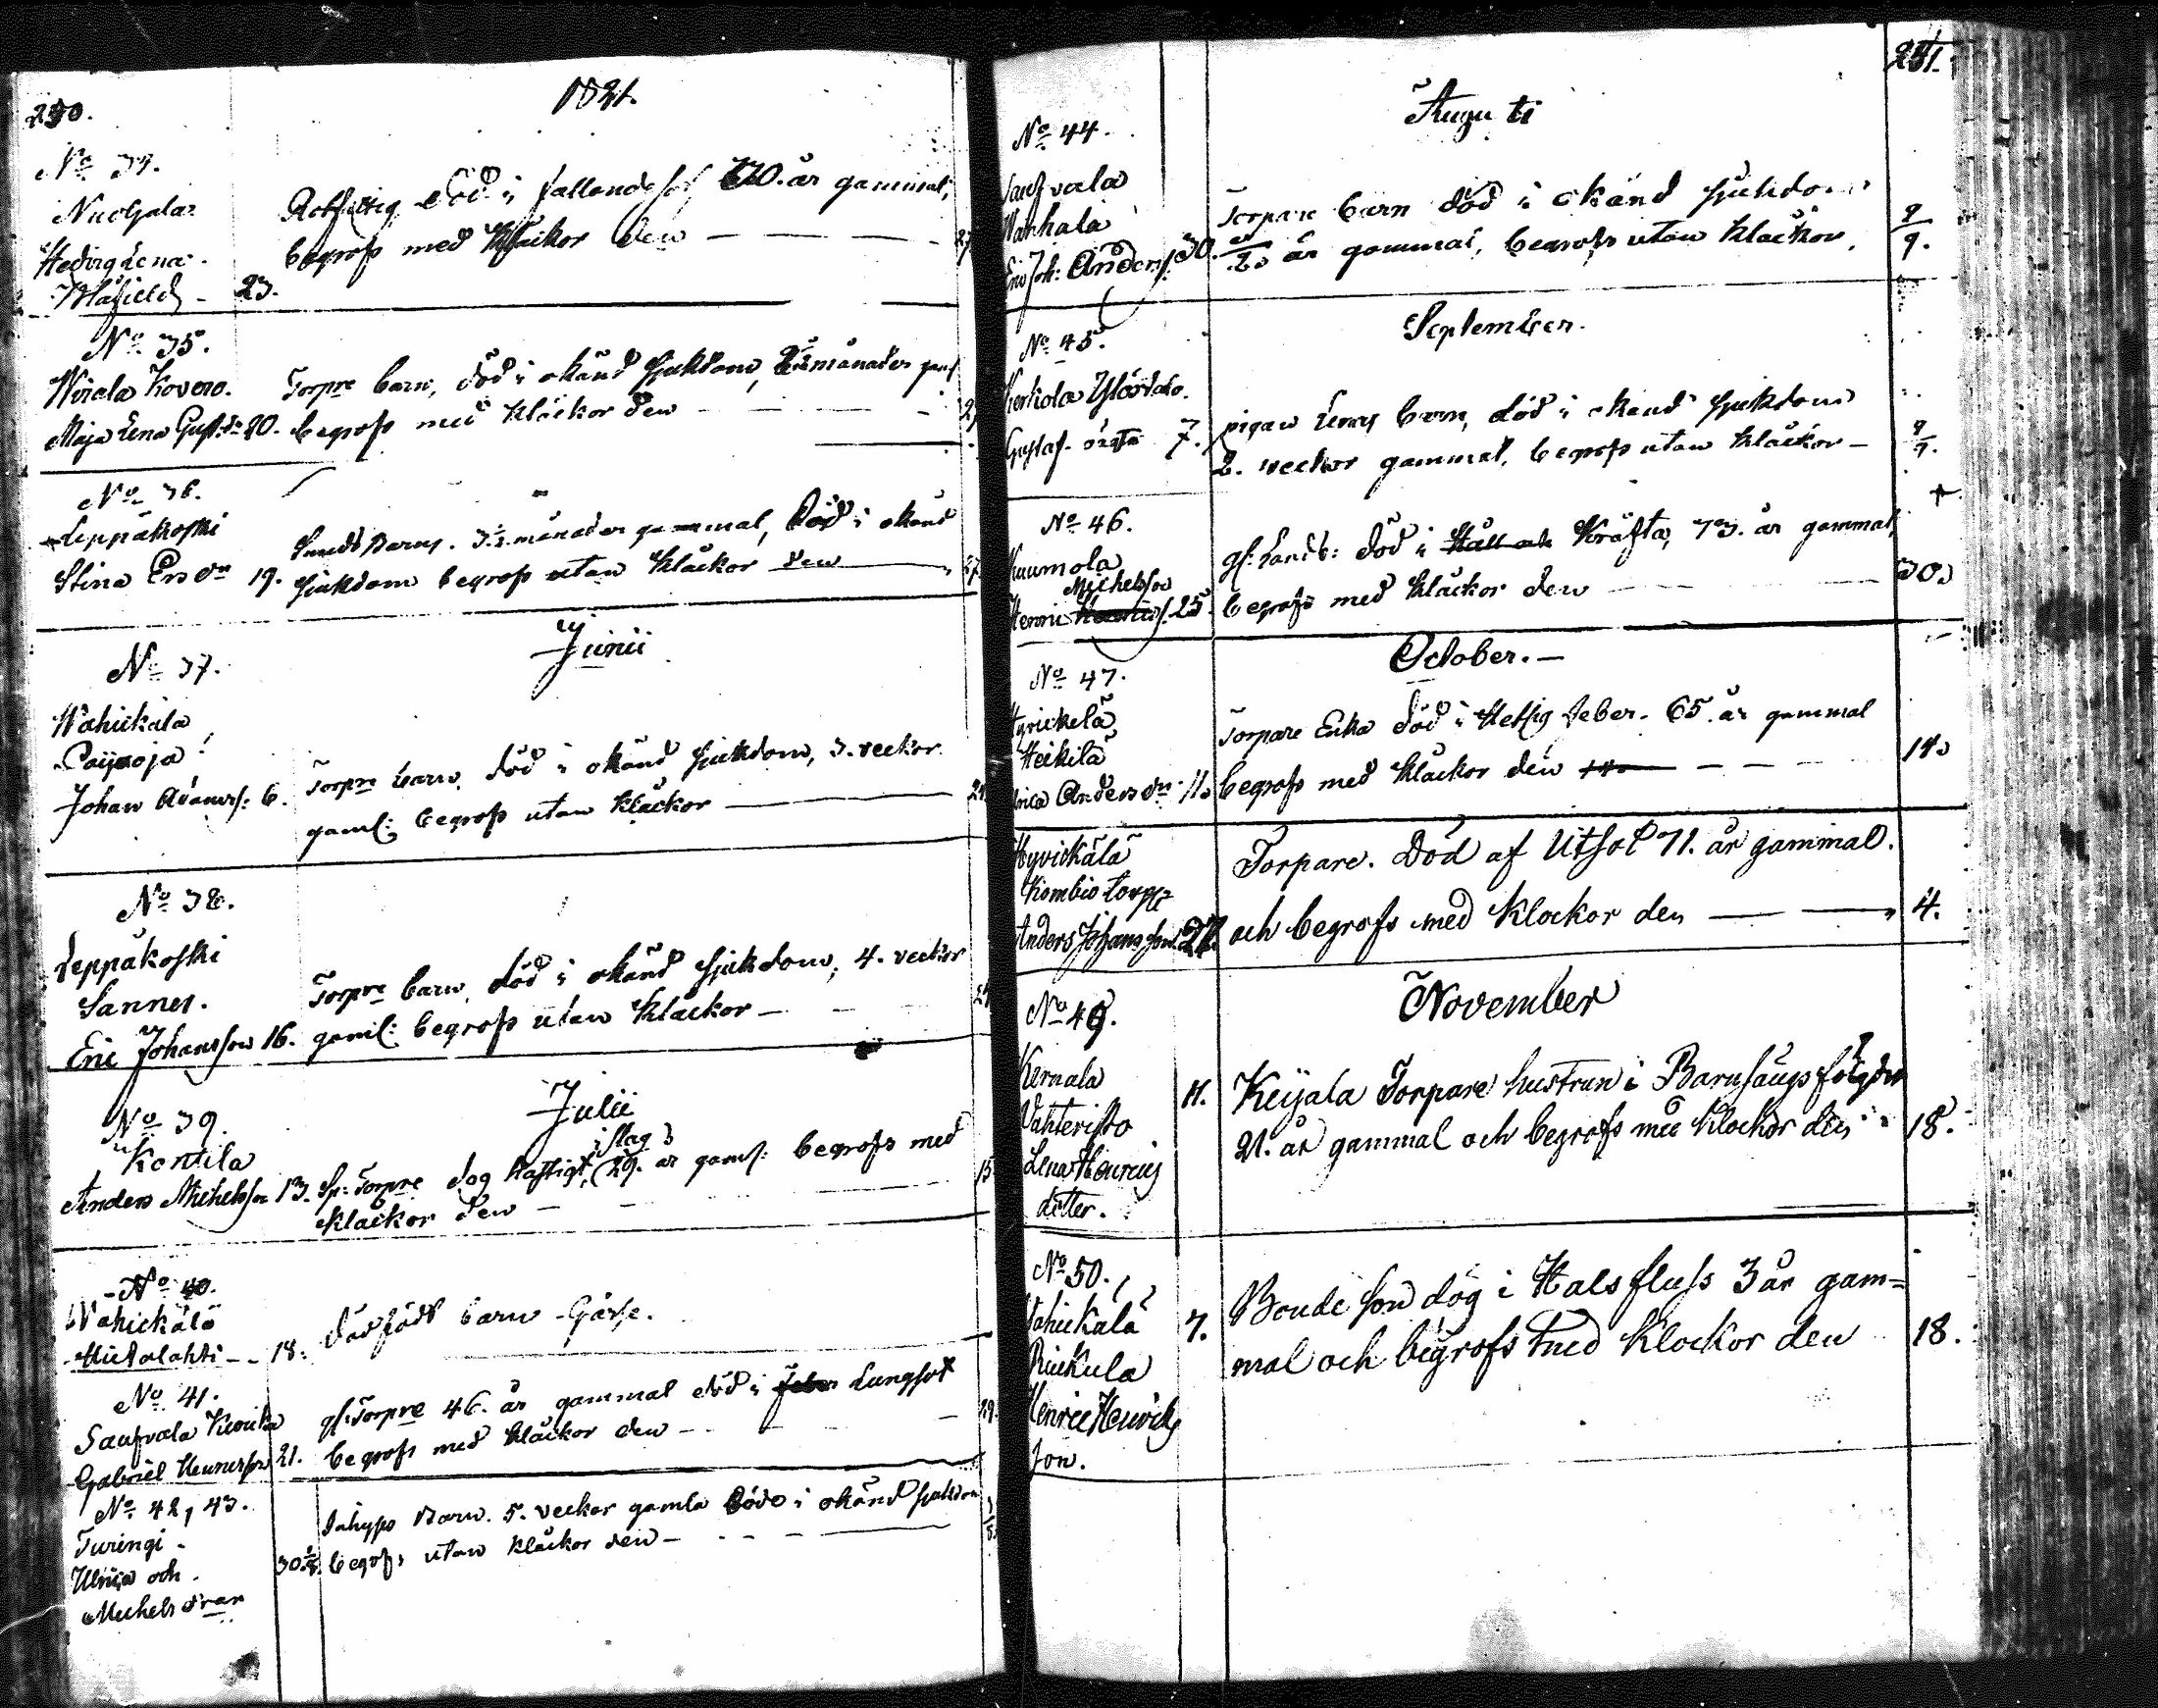 250.
1821.
No 34.
Nuoljala
Hedvig Lena
23.
Rotfattig död i fallandesot 70. år gammal,
begrofs med Kläckor den
27
No 35.
Wirala Kovero.
Maja Lena Gust: dr 20.
Torpre barn, död i okänd sjukdom, månader gaml
begrofs med Kläckor den
No 36.
Leppäkoski
Stina Ers dr 19.
barn. 3½ månader gammal, död i okänd
sjukdom begrofs utan Kläckor den
27.
Junii
No 37.
Wahickala
Paijaoja
Johan Adamss: 6.
Torpre barn, död i okänd sjukdom, 3. veckor
gaml: begrofs utan Kläckor
24.
No 38.
Leppäkoski
Sannes.
Eric Johansson 16.
Torpre barn, död i okänd sjukdom, 4. veckor
gaml: begrofs utan Kläckor
24
Julii
No 39.
Kontila
Anders Michelsson 13.
i slag
Sp: Torpre dog hastigt, 29. år gaml: begrofs med
Kläckor den
15
No 40.
Wahickälä
Hietalahti - 18.
Dödfödt barn - Gåsse.
No 41.
Saufvala
Gabriel Henricsson 21.
gl: Torpre 46. år gammal död i Feber Lungsot
begrofs med Kläckor den
29.
No 42, 43.
Turengi -
Ulrica och
Michels drar
30
Inhyses Barn. 5. veckor gamla döde i okänd sjukdom
begrofs utan kläckor den
251.
Augusti
No 44.
Saufvala
Wanhala
Eric Joh: Anderss: 30.
Torpare barn död i okänd sjukdom
år gammal, begrofs utan Kläckor.
9.
September.
No 45.
Gustaf 7.
pigan Lenas barn, död i okänd sjukdom
2. veckor gammal, begrofs utan Kläckor
9.
No 46.
Kuumola
Michelsson
Henric Henrics: 25.
gl: Landb: död i Håll och Kräfta, 73. år gammal,
begrofs med Kläckor den
30.
October. -
No 47.
Hyvickelä
Heikilä
Anders dr 11.
Torpare Enka död i Hetsig feber. 65. år gammal
begrofs med Kläckor den
14.
Hyvickälä
Kombio torp
Anders Johansson 27.
Torpare. Död af Utsot 71. år gammal.
och begrofs med Klockor den
4.
November
No 49.
Kernala
Vahteristo
Lena Henrics
dotter.
11.
Keijala Torpare hustrun i Barnsängs följder
21. år gammal och begrofs med Klockor den
18.
No 50.
Vahickälä
Rickula
Henric Henrics
son.
7.
Bonde son dog i Halsfluss 3 år gam=
mal och begrofs med Klockor den
18.